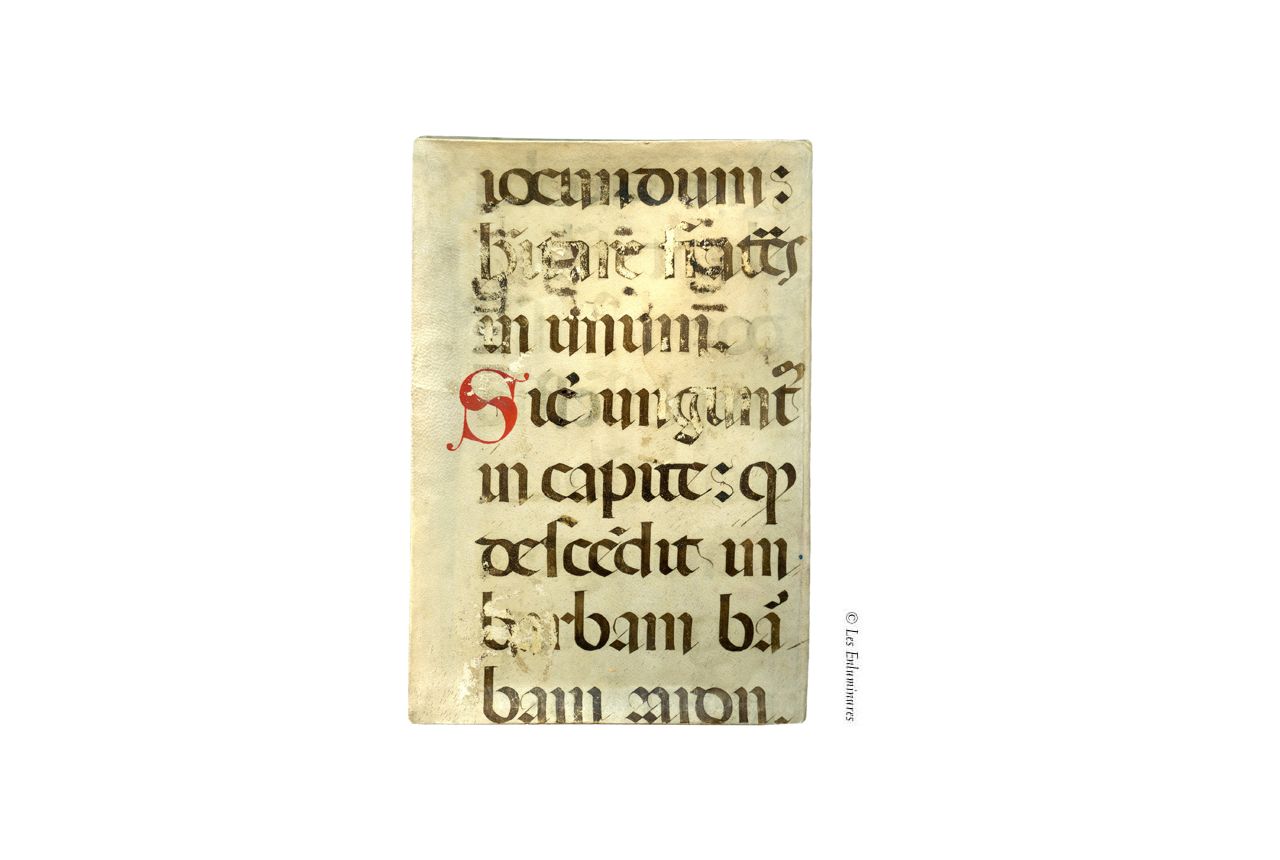 iocundum:
h̃itare fratẽs
in unum.
Sic̃ ungunt̃
in capite: qp
descẽdit in
barbam bã
bam aaron.
© Les Enluminures